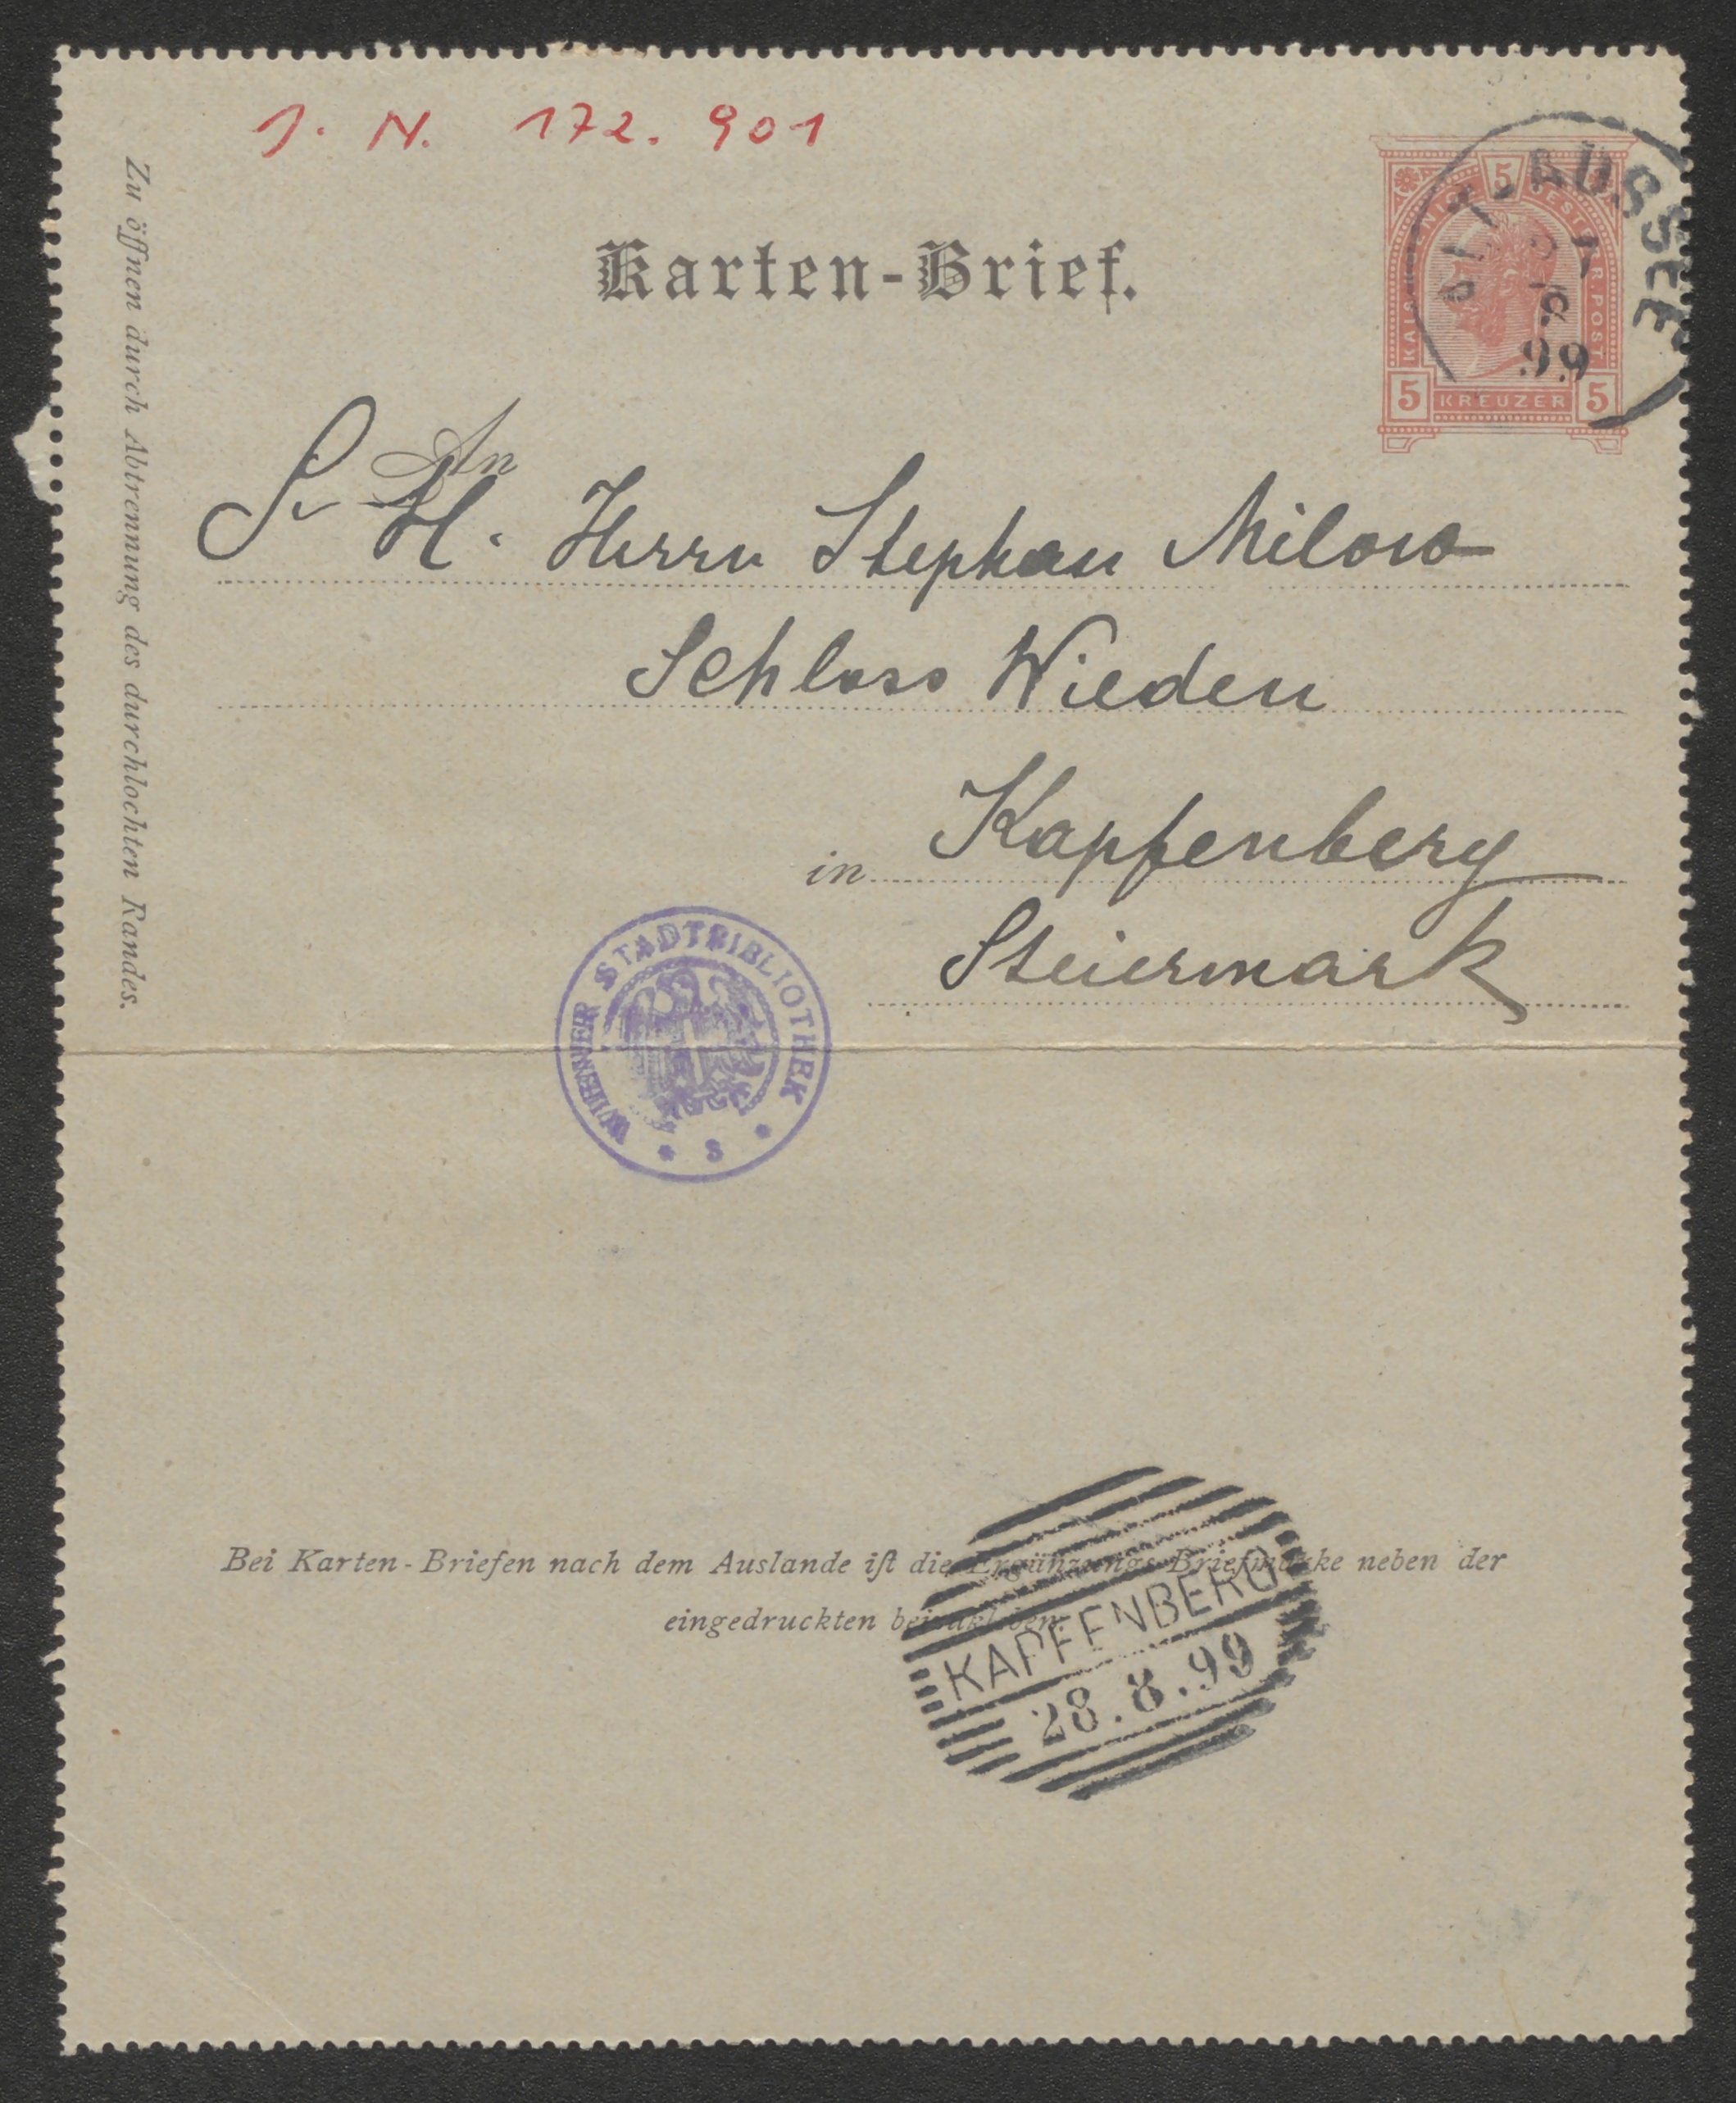 J. N. 172. 901
Zu öffnen durch Abtrennung des durchlochten Randes.
Karten-Brief.
5
KREUZER
5 5
ALT-AUSSEE
99
An
Sr H. Herrn Stephan Milow
Schloss Wieden
in Kapfenberg
Steiermark
WIENER STADTBIBLIOTHEK
* S *
Bei Karten-Briefen nach dem Auslande ist die Ergänzungs-Briefmarke neben der
eingedruckten beizukleben.
KAPFENBERG
28.8.99